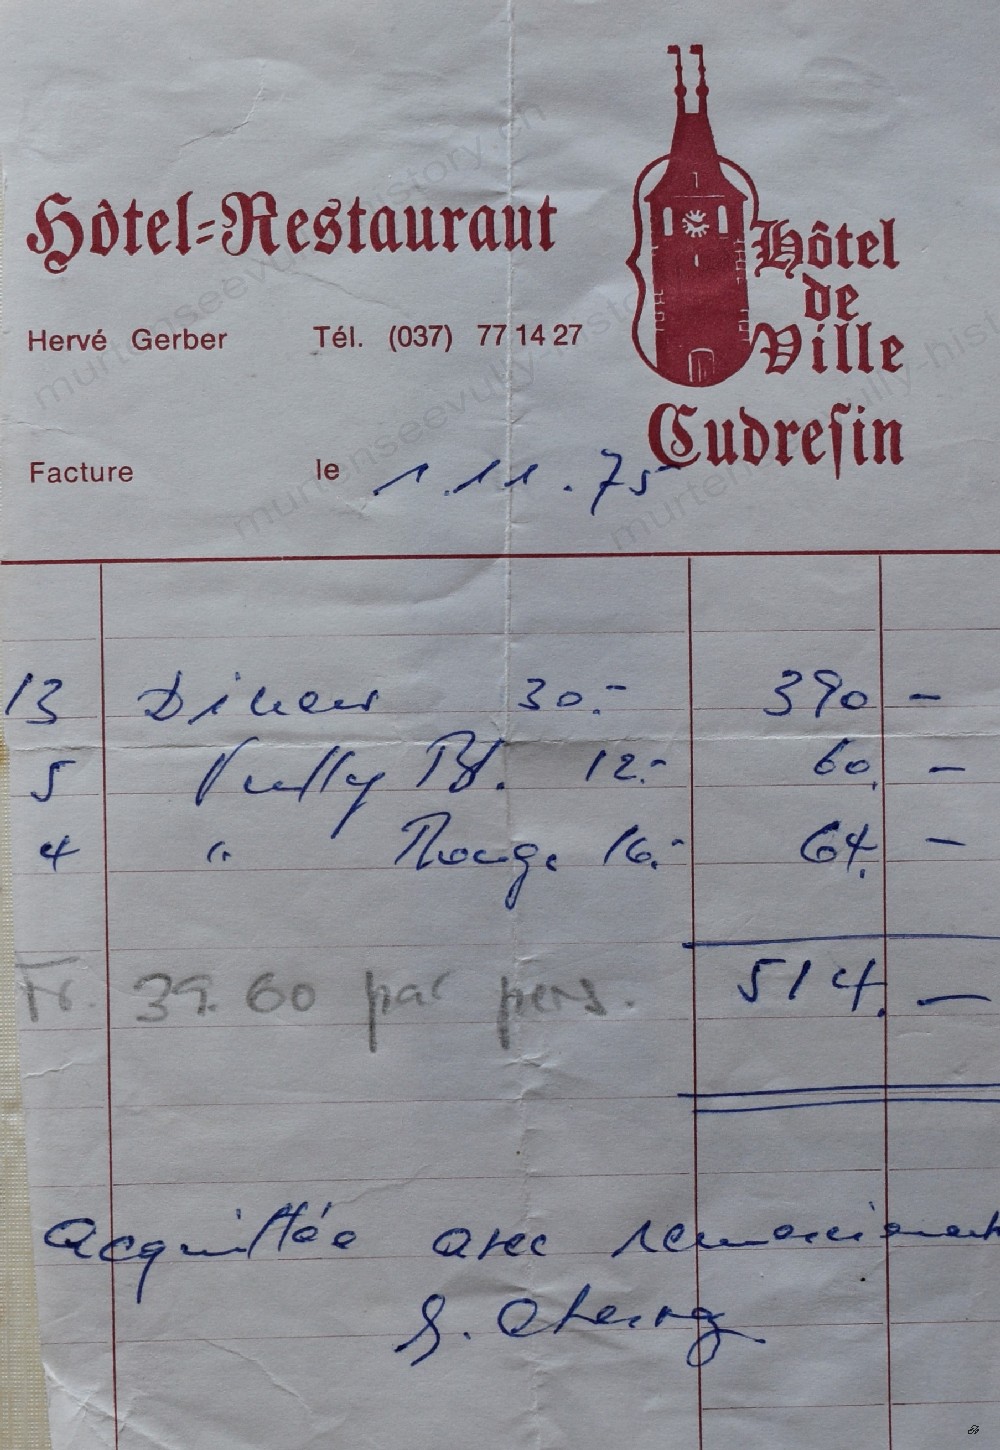 Hôtel-Restaurant
Hôtel
de
Ville
Hervé Gerber Tél. (037) 77 14 27
Cudrefin
Facture le 1.11.75
13 Diners 30.- 390 -
5 Vully Bl. 12.- 60. -
4 " Rouge 16.- 64. -
Fr. 39.60 par pers. 514. -
acquittée avec remerciement
murtenseevully-history.ch
murtenseevully-history
murtenseevully-hist